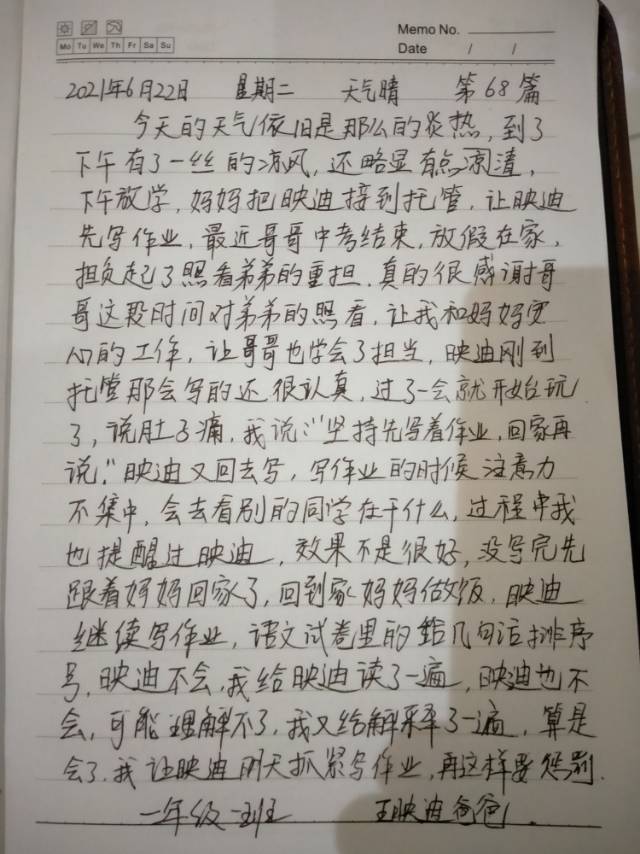 Memo No.
Mo Tu We Th Fr Sa Su
Date / /
2021年6月22日 星期二 天气晴 第68篇
今天的天气依旧是那么的炎热,到了
下午有了一丝的凉风,还略显有点凉清,
下午放学,妈妈把映迪接到托管,让映迪
先写作业,最近哥哥中考结束,放假在家,
担负起了照看弟弟的重担.真的很感谢哥
哥这段时间对弟弟的照看,让我和妈妈安
心的工作,让哥哥也学会了担当,映迪刚到
托管那会写的还很认真,过了一会就开始玩
了,说肚子痛,我说:“坚持先写着作业,回家再
说,"映迪又回去写,写作业的时候注意力
不集中,会去看别的同学在干什么,过程中我
也提醒过映迪,效果不是很好,没写完先
跟着妈妈回家了,回到家妈妈做饭,映迪
继续写作业,语文试卷里的给几句话排序
号,映迪不会,我给映迪读了一遍,映迪也不
会,可能理解不了,我又给解释了一遍,算是
会了.我让映迪明天抓紧写作业,再这样要惩罚.
一年级一班 王映迪爸爸.